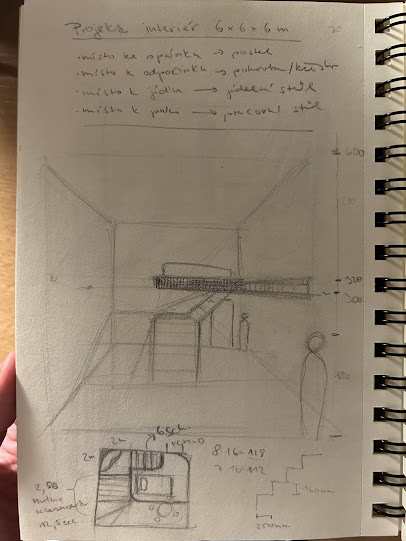 Projekt interiér 6×6×6 m
· místo ke spánku → postel
· místo k odpočinku → pohovka/křeslo
· místo k jídlu → jídelní stůl
· místo k práci → pracovní stůl
600
320
300
2m
2m
8·16=128
7·16=112
2,50
nutná
160mm
250mm